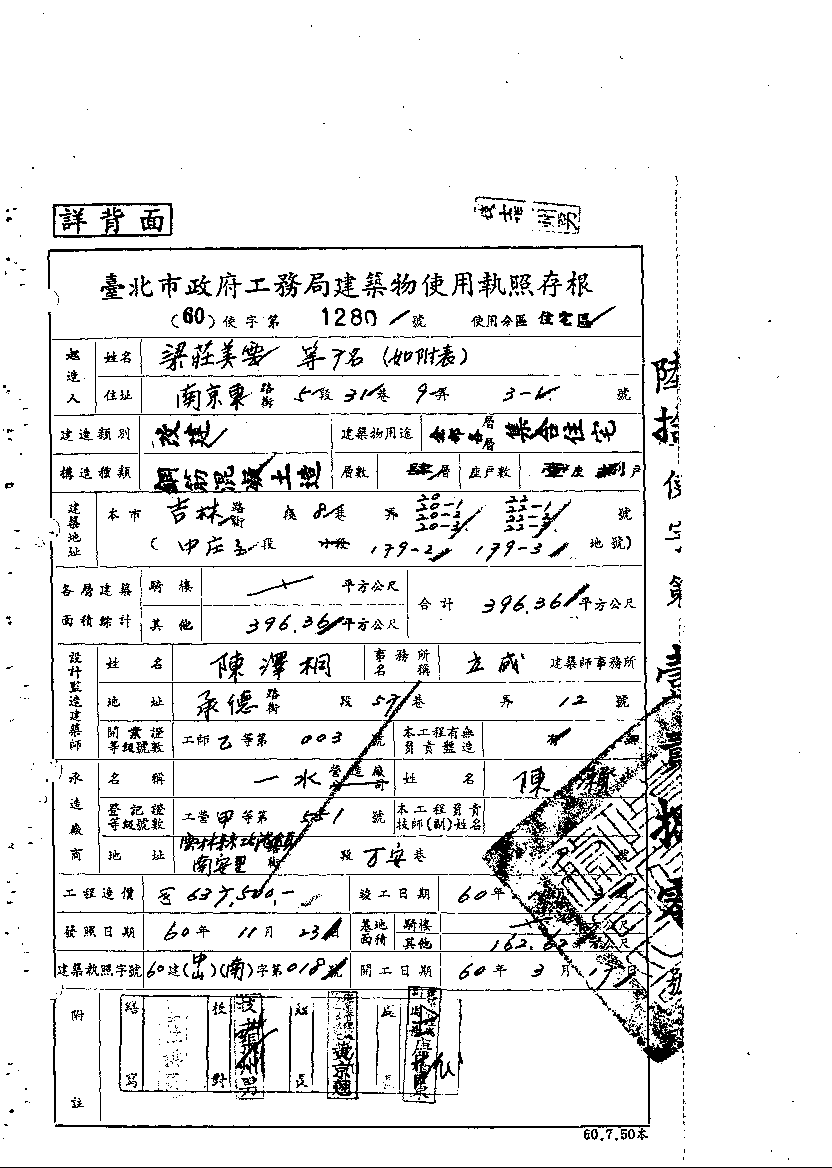 詳背面
臺北市政府工務局建築物使用執照存根
(60)使字第 1280 號 使用分區 住宅區
起造人 姓名 梁莊美雲 等7名(如附表)
住址 南京東 路街 5段 31巷 9弄 3-1 號
建造類別 改造 建築物用途 全部各層層 集合住宅
構造種類 鋼筋混凝土造 層數 肆層 座戶數 壹座 戶
建築地址 本市 吉林 路街 段 8巷 弄 20 20-1 20-2 20-3 22 22-1 22-2 22-3 號
(中庄子段 小段 179-2 179-3 地號)
各層建築面積綜計 騎樓 平方公尺 合計 396.36 平方公尺
其他 396.36 平方公尺
設計監造建築師 姓名 陳澤桐 事務所名稱 立成 建築師事務所
地址 承德 路街 段 57巷 弄 12 號
開業證等級號數 工師乙等第 003 號 本工程有無負責監造 有
承造廠商 名稱 一水 營造廠公司 姓名 陳
登記證等級號數 工營甲等第 551 號 本工程負責技師(副)姓名
地址 南安里 段 万安巷 號
工程造價 637,500.- 竣工日期 60年
發照日期 60年 11月 23日 基地面積 騎樓 公尺
其他 162. 公尺
建築執照字號 60建(中山)(南)字第018號 開工日期 60年 3月 17日
附註 繕寫 校對 股長
黃京
60.7.50本
陸拾 使字第 壹